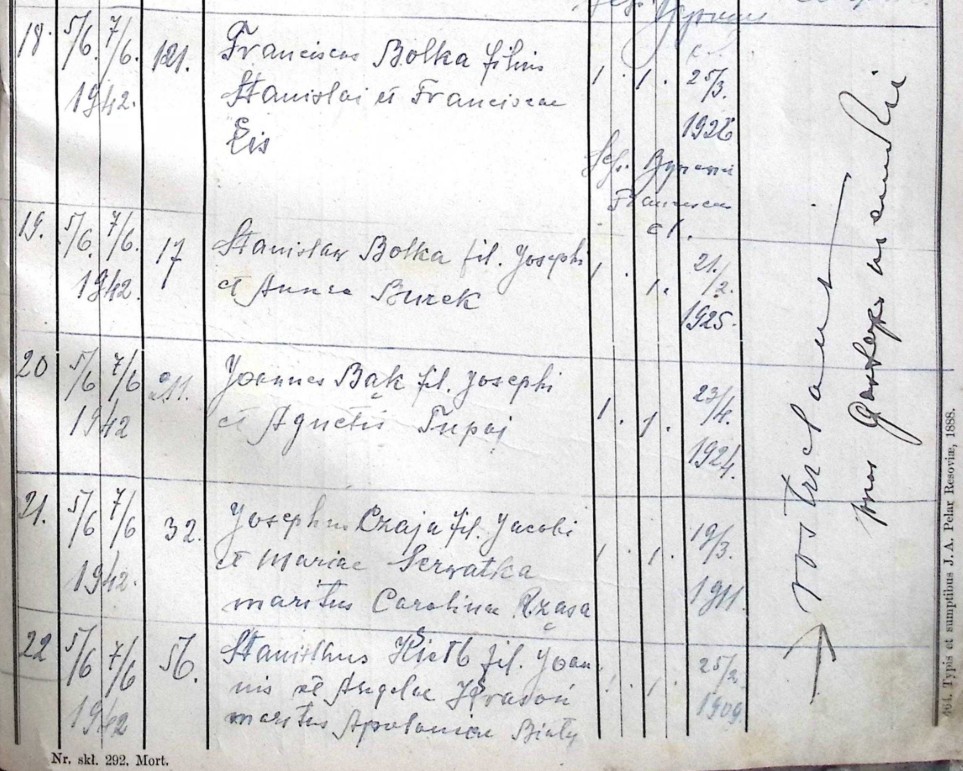 18. 5/6. 7/6. 121. Franciscus Bolka filius 1 . 1 . 25/3.
1942. Stanislai et Franciscae 1926
Lis
Franciscus
19. 5/6. 7/6. 17 Stanislaw Bolka fil. Josephi 1 . 1. 21/2.
1942. et Annae Burek 1925.
20 5/6 7/6 211. Joannes Bąk fil. Josephi 1 . 1. 23/4.
1942 et Agnetis Tupaj 1924.
21. 5/6 7/6 32. Josephus Czaja fil. Jacobi 1 . 1. 19/3.
1942. et Mariae Serwatka 1911.
maritus Carolinae Rząsa
22 5/6 7/6 56. Stanislaus Kiełb fil. Joan- 1 . 1. 25/2
1942 nis et Angelae 1909
maritus Apoloniae Biały
→ rozstrzelani
przez Gestapo niemieckie
Nr. skł. 292. Mort.
464. Typis et sumptibus J. A. Pelar Resoviæ, 1888.